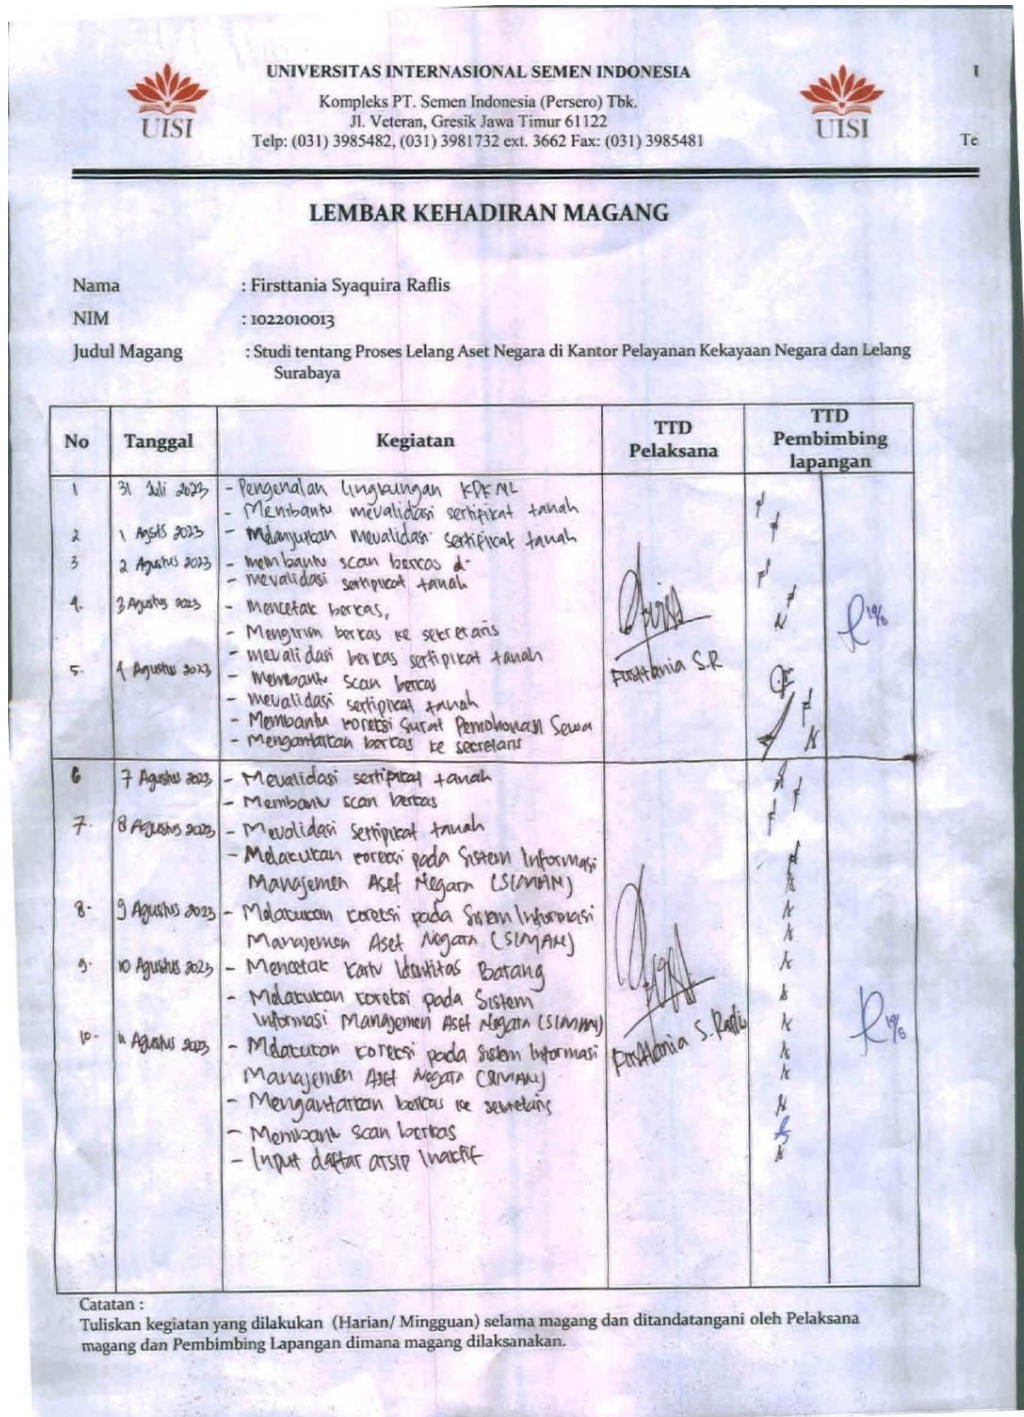 UNIVERSITAS INTERNASIONAL SEMEN INDONESIA
Kompleks PT. Semen Indonesia (Persero) Tbk.
Jl. Veteran, Gresik Jawa Timur 61122
Telp: (031) 3985482, (031) 3981732 ext. 3662 Fax: (031) 3985481
UISI
UISI
Te
LEMBAR KEHADIRAN MAGANG
Nama : Firsttania Syaquira Raflis
NIM : 1022010013
Judul Magang : Studi tentang Proses Lelang Aset Negara di Kantor Pelayanan Kekayaan Negara dan Lelang
Surabaya
No Tanggal Kegiatan TTD Pelaksana TTD Pembimbing lapangan
1 31 Juli 2023 - Pengenalan lingkungan KPKNL
- Membantu mevalidasi sertipikat tanah
2 1 Agsts 2023 - Melanjutkan mevalidasi sertifikat tanah
3 2 Agustus 2023 - membantu scan berkas d
- mevalidasi sertipikat tanah
4. 3 Agustus 2023 - Mencetak berkas,
- Mengirim berkas ke sekretaris
- mevalidasi berkas sertipikat tanah
5. 4 Agustus 2023 - Membantu scan berkas
- mevalidasi sertipikat tanah
- Membantu koreksi surat Permohonan Sewa
- Mengantarkan berkas ke secretaris
Firsttania S.R
19/8
6 7 Agustus 2023 - Mevalidasi sertipikat tanah
- Membantu scan berkas
7. 8 Agustus 2023 - Mevalidasi sertipikat tanah
- Melakukan koreksi pada Sistem Informasi
Manajemen Aset Negara (SIMAN)
8. 9 Agustus 2023 - Melakukan koreksi pada Sistem Informasi
Manajemen Aset Negara (SIMAN)
9. 10 Agustus 2023 - Mencetak Kartu Identitas Barang
- Melakukan koreksi pada Sistem
Informasi Manajemen Aset Negara (SIMAN)
10. 11 Agustus 2023 - Melakukan koreksi pada Sistem Informasi
Manajemen Aset Negara (SIMAN)
- Mengantarkan berkas ke sekretaris
- Membantu scan berkas
- Input daftar arsip Inaktif
Firsttania S. Raflis
19/8
Catatan :
Tuliskan kegiatan yang dilakukan (Harian/ Mingguan) selama magang dan ditandatangani oleh Pelaksana
magang dan Pembimbing Lapangan dimana magang dilaksanakan.